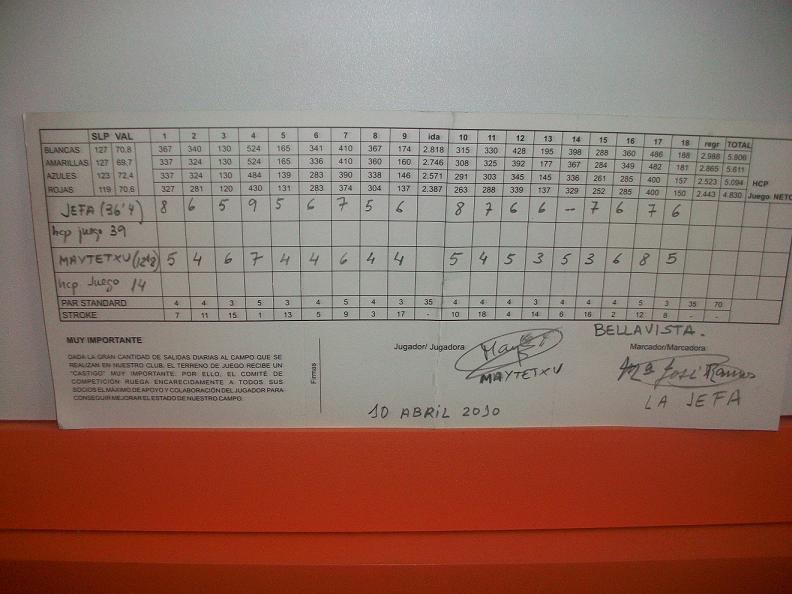 SLP VAL 1 2 3 4 5 6 7 8 9 ida 10 11 12 13 14 15 16 17 18 regr TOTAL
BLANCAS 127 70,8 367 340 130 524 165 341 410 367 174 2.818 315 330 428 195 398 288 360 486 188 2.988 5.806
AMARILLAS 127 69,7 337 324 130 524 165 336 410 360 160 2.746 308 325 392 177 367 284 349 482 181 2.865 5.611
AZULES 123 72,4 337 324 130 484 139 283 390 338 146 2.571 291 303 345 145 336 261 285 400 157 2.523 5.094 HCP
ROJAS 119 70,6 327 281 120 430 131 283 374 304 137 2.387 263 288 339 137 329 252 285 400 150 2.443 4.830 Juego NETO
JEFA (36'4) 8 6 5 9 5 6 7 5 6 8 7 6 6 - 7 6 7 6
hcp juego 39
MAYTETXU (12'8) 5 4 6 7 4 4 6 4 4 5 4 5 3 5 3 6 8 5
hcp Juego 14
PAR STANDARD 4 4 3 5 3 4 5 4 3 35 4 4 4 3 4 4 4 5 3 35 70
STROKE 7 11 15 1 13 5 9 3 17 - 10 18 4 14 6 16 2 12 8 - -
BELLAVISTA.
MUY IMPORTANTE
Jugador/ Jugadora
Marcador/Marcadora
DADA LA GRAN CANTIDAD DE SALIDAS DIARIAS AL CAMPO QUE SE
REALIZAN EN NUESTRO CLUB. EL TERRENO DE JUEGO RECIBE UN
"CASTIGO" MUY IMPORTANTE. POR ELLO, EL COMITE DE
COMPETICIÓN RUEGA ENCARECIDAMENTE A TODOS SUS
SOCIOS EL MÁXIMO DE APOYO Y COLABORACIÓN DEL JUGADOR PARA
CONSEGUIR MEJORAR EL ESTADO DE NUESTRO CAMPO.
Firmas
MAYTETXU
Mª José Ramos
LA JEFA
10 ABRIL 2010